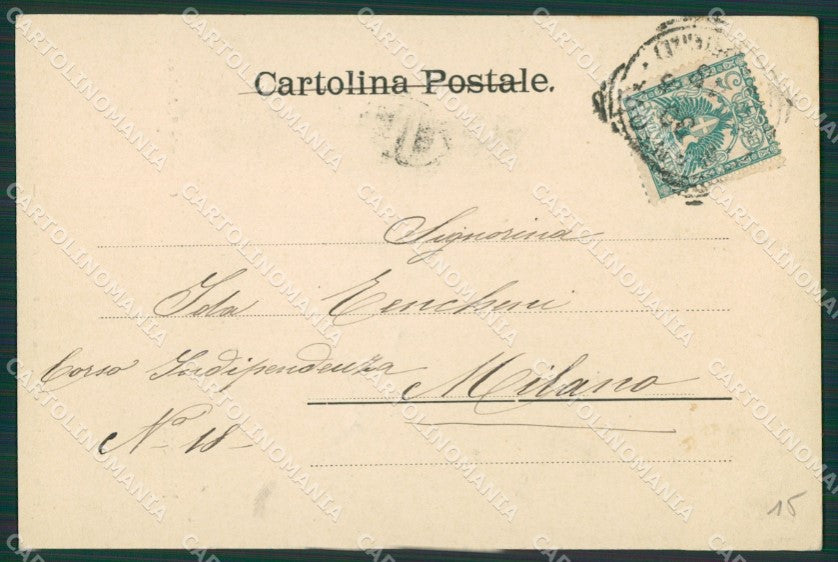 Cartolina Postale.
Signorina
Ida
Corso Indipendenza Milano
No 18
15
CARTOLINOMANIA